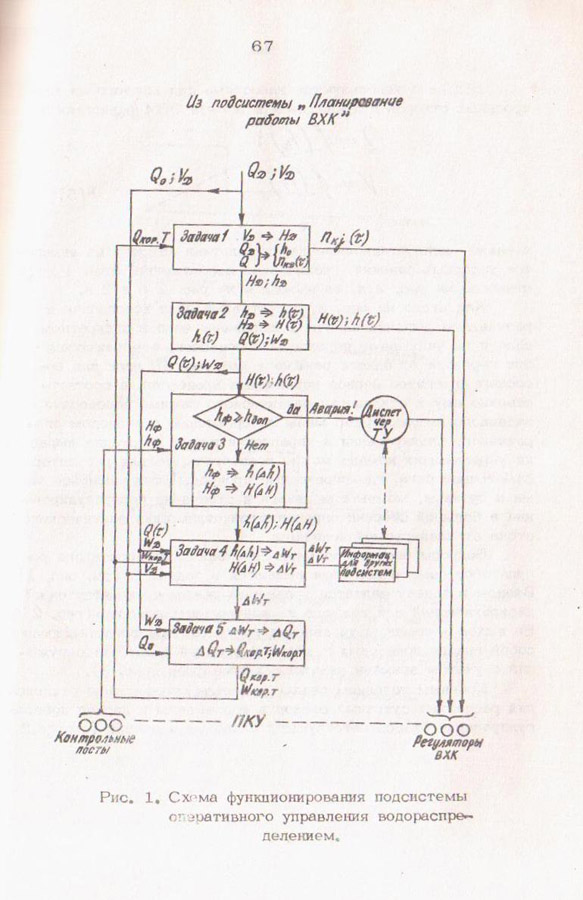 67
Из подсистемы „Планирование
работы ВХК"
Q₀; V∂
Q∂; V∂
Qкор.т
Задача 1 V∂ ⇒ H∂
Q∂
Q
⇒
h₀
nкj(τ)
H∂; h∂
Задача 2 h∂ ⇒ h(τ)
H∂ ⇒ H(τ)
h(τ) Q(τ); W∂
H(τ); h(τ)
Q(τ); W∂
H(τ); h(τ)
hф ≥ hдоп
да
Авария!
Диспет
чер
ТУ
Hф
hф
Задача 3
Нет
hф ⇒ h(Δh)
Hф ⇒ H(ΔH)
h(Δh); H(ΔH)
Q(τ)
W∂
Wкор.т
V∂
Задача 4 h(Δh) ⇒ ΔWт
H(ΔH) ⇒ ΔVт
ΔWт
ΔVт
Информац.
для других
подсистем
ΔWт
W∂
Q₀
Задача 5 ΔWт ⇒ ΔQт
ΔQт ⇒ Qкор.т; Wкор.т
Qкор.т
Wкор.т
ПКУ
Контрольные
посты
Регуляторы
ВХК
Рис. 1. Схема функционирования подсистемы
оперативного управления водораспре-
делением.